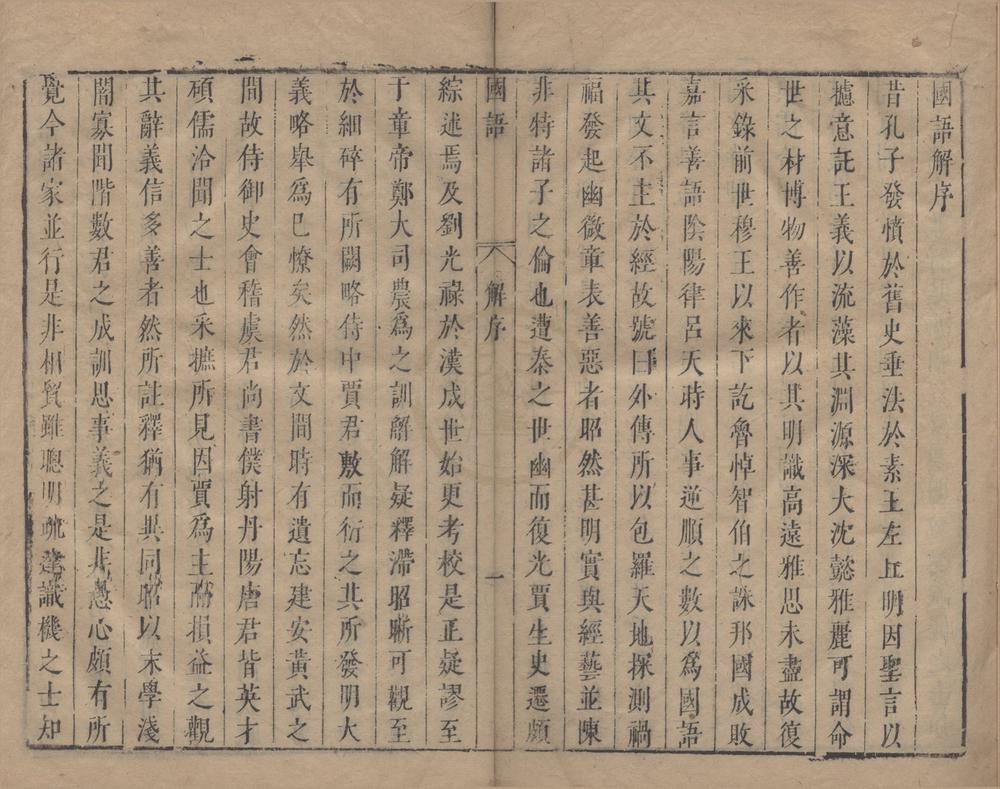 國語解序
昔孔子發憤於舊史垂法於素王左丘明因聖言以
攄意託王義以流藻其淵源深大沈懿雅麗可謂命
世之材博物善作者以其明識高遠雅思未盡故復
采錄前世穆王以來下訖魯悼智伯之誅邦國成敗
嘉言善語陰陽律呂天時人事逆順之數以為國語
其文不主於經故號曰外傳所以包羅天地探測禍
福發起幽微章表善惡者昭然甚明實與經藝並陳
非特諸子之倫也遭秦之世幽而復光賈生史遷頗
國語 解序 一
綜述焉及劉光祿於漢成世始更考校是正疑謬至
于章帝鄭大司農為之訓解解疑釋滯昭晰可觀至
於細碎有所闕略侍中賈君敷而衍之其所發明大
義略舉為已憭矣然於文間時有遺忘建安黃武之
間故侍御史會稽虞君尚書僕射丹陽唐君皆英才
碩儒洽聞之士也采摭所見因賈為主而損益之觀
其辭義信多善者然所註釋猶有異同昭以末學淺
闇寡聞階數君之成訓思事義之是非愚心頗有所
覺今諸家並行是非相貿雖聰明疏達識機之士知